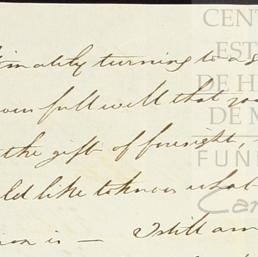 turning to a
full well that you
the gift of foresight,
like to know what
is — I still am
CENT
EST
DE H
DE M
FUN
Car